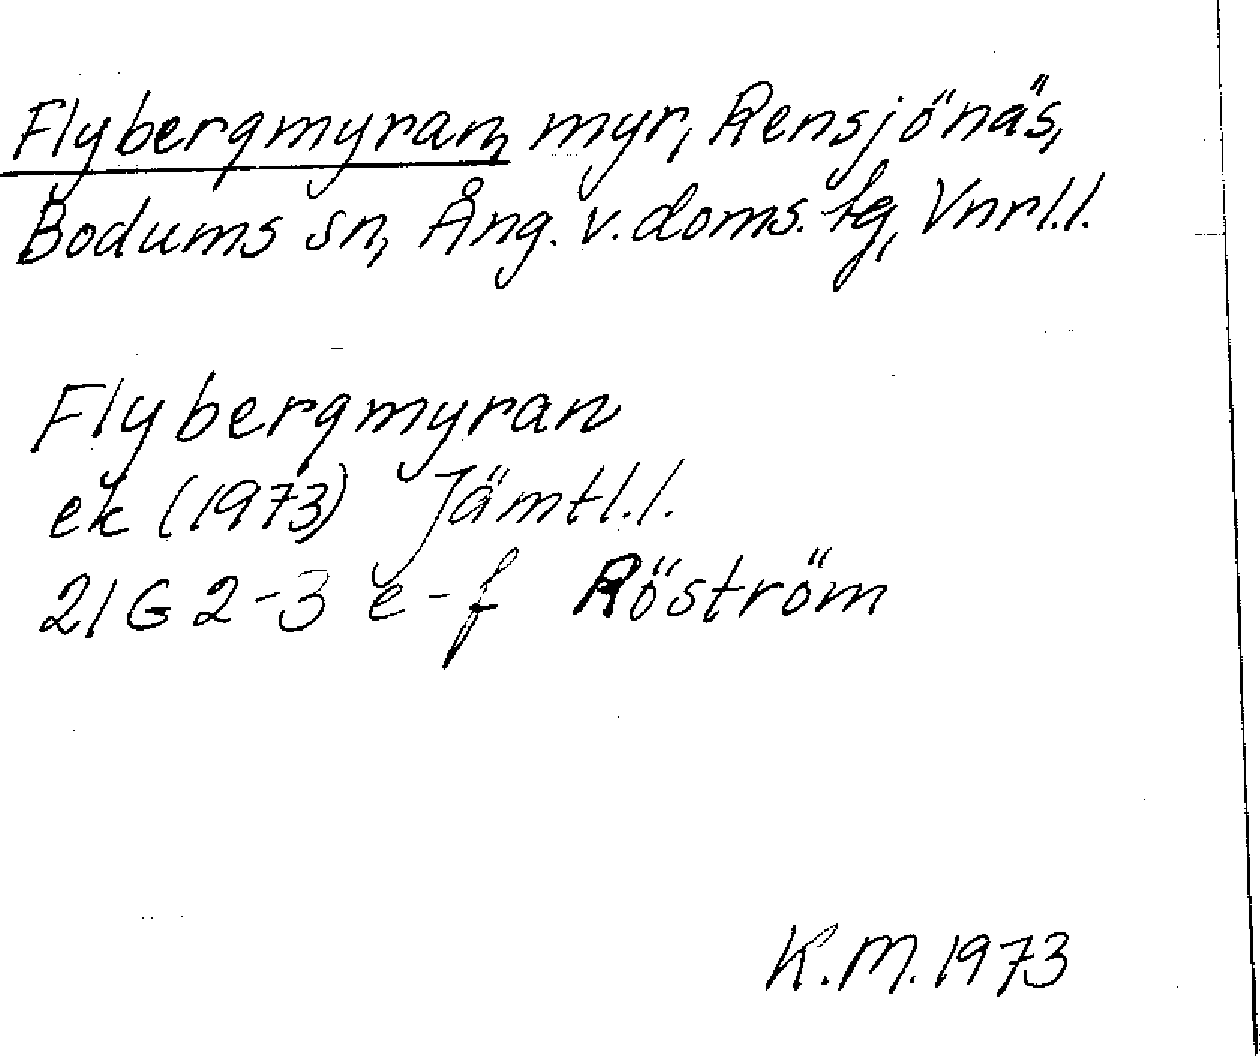 Flybergmyran, myr, Rensjönäs,
Bodums sn, Ång. v. doms. tg, Vnrl.l.
Flybergmyran
ek (1973) Jämtl.l.
21G 2-3 e-f Röström
K.M. 1973